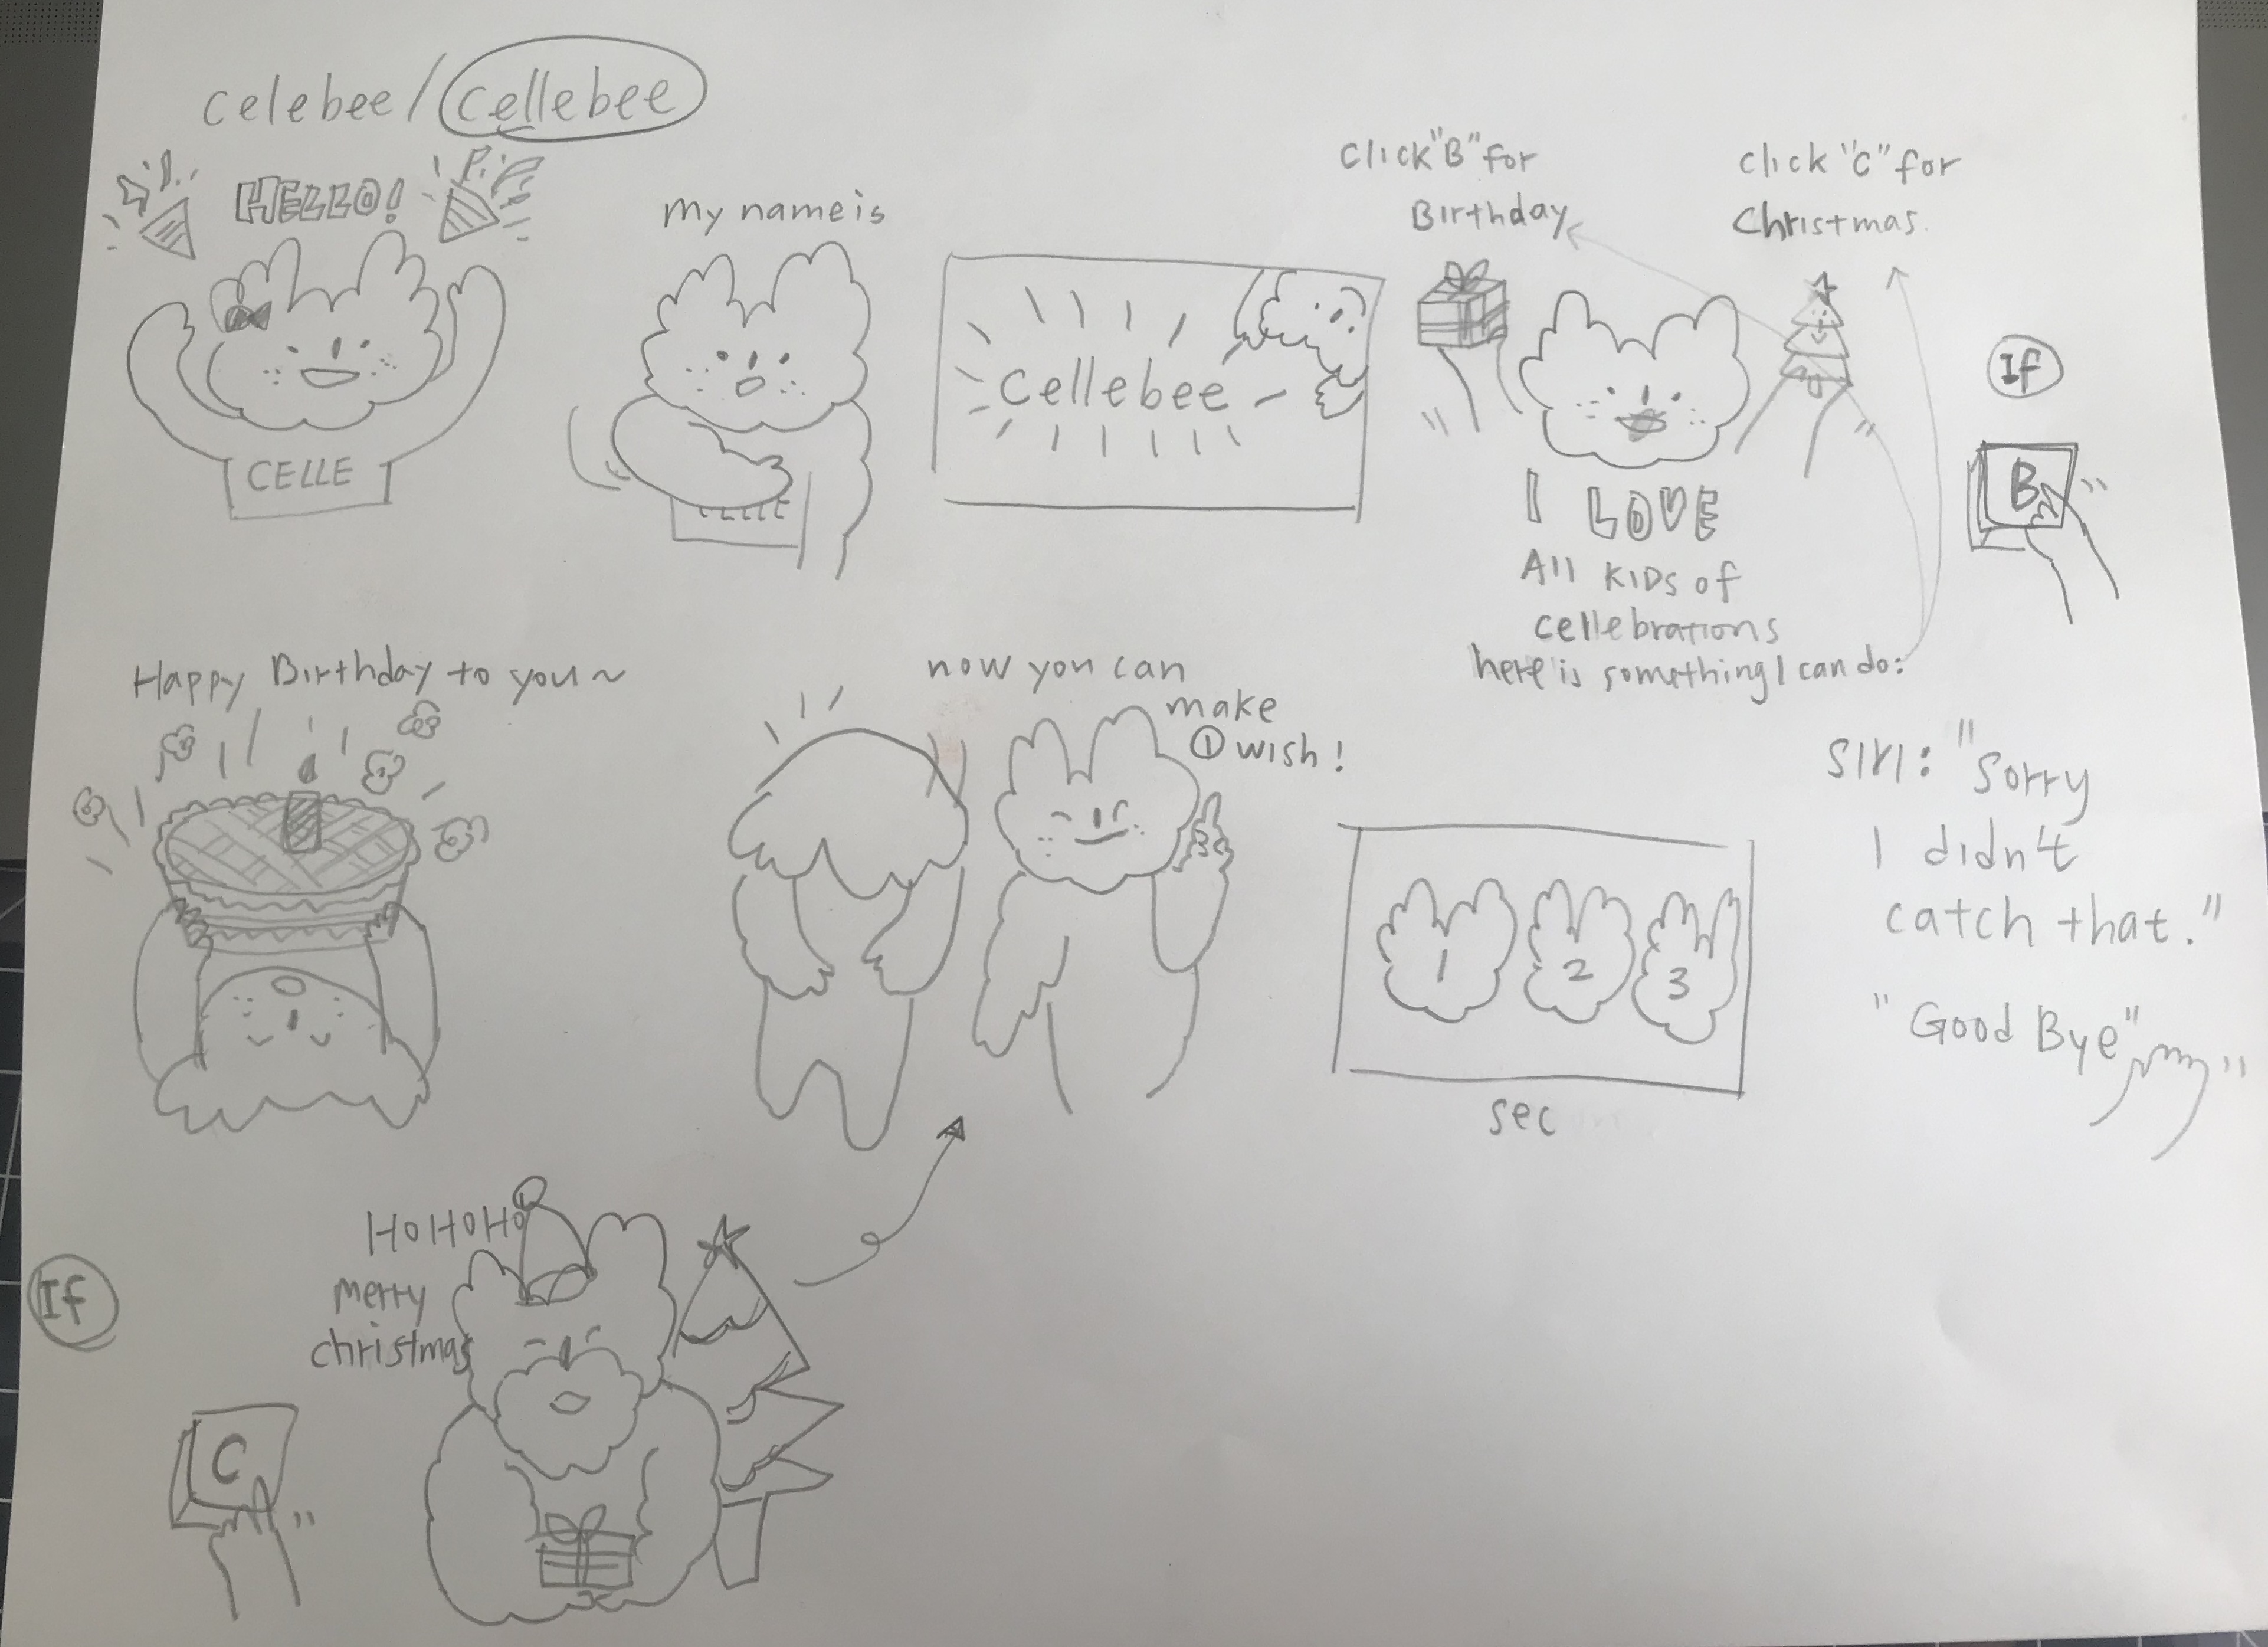 celebee/cellebee
HELLO!
CELLE
my name is
CELLE
Cellebee
Click "B" for
Birthday
click "C" for
Christmas.
I LOVE
All KIDS of
cellebrations
here is something I can do:
If
B
Happy Birthday to you~
now you can
make
① wish!
1 2 3
sec
SIRI: "Sorry
I didn't
catch that."
"Good Bye"
If
C
HOHOHO
merry
christmas